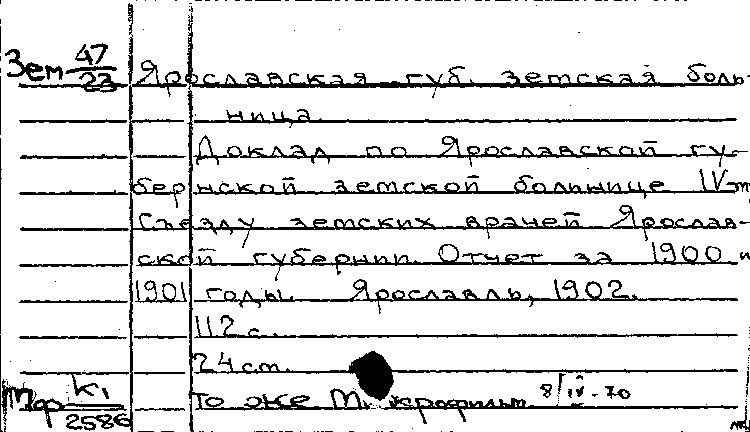 Зем 47/23
Ярославская губ. земская боль-
ница.
Доклад по Ярославской гу-
бернской земской больнице IV-м
съезду земских врачей Ярослав-
ской губернии. Отчет за 1900 и
1901 годы. Ярославль, 1902.
112 с.
24 см.
Мф К1/2586
То же Микрофильм 8/IV-70